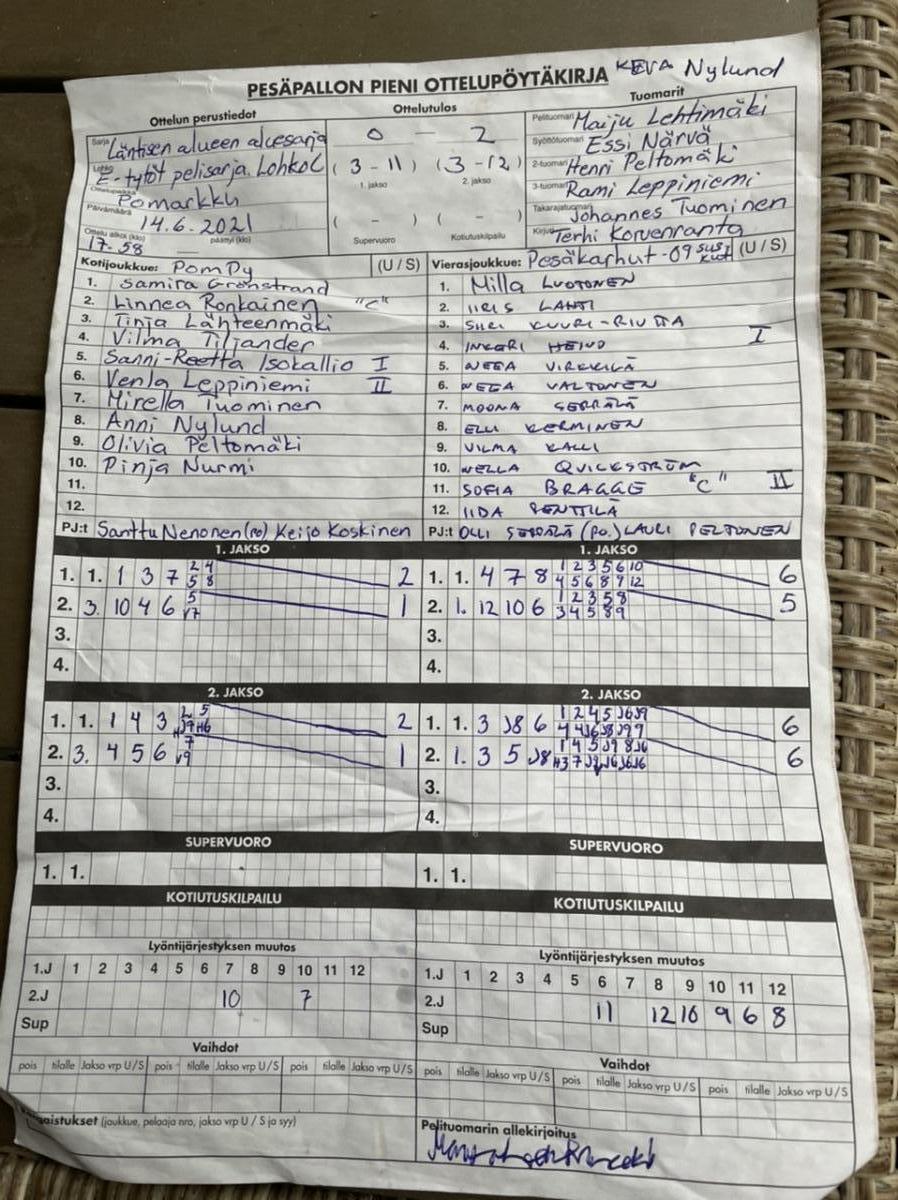 PESÄPALLON PIENI OTTELUPÖYTÄKIRJA KEVA Nylund
Ottelun perustiedot Ottelutulos Tuomarit
Sarja Läntisen alueen aluesarja 0 - 2 Pelituomari Maiju Lehtimäki
Lohko E-tytöt pelisarja. LohkoC (3-11) (3-12) Syöttötuomari Essi Närvä
1. jakso 2. jakso 2-tuomari Henri Peltomäki
Ottelupaikka Pomarkku 3-tuomari Rami Leppiniemi
Päivämäärä 14.6.2021 ( - ) ( - ) Takarajatuomari Johannes Tuominen
Ottelu alkoi (klo) 17.58 päättyi (klo) Supervuoro Kotiutuskilpailu Kirjuri Terhi Korvenranta
Kotijoukkue: PomPy (U / S) Vierasjoukkue: Pesäkarhut -09 (U / S)
1. Samira Grönstrand 1. Milla LUOTONEN
2. Linnea Ronkainen "C" 2. IIRIS LAHTI
3. Tinja Lähteenmäki 3. SIIRI KUURI-RIUTTA
4. Vilma Tiljander 4. INKERI HEINO I
5. Sanni-Reetta Isokallio I 5. NEEA VIRKKILÄ
6. Venla Leppiniemi II 6. NEEA VALTONEN
7. Mirella Tuominen 7. MOONA SEPPÄLÄ
8. Anni Nylund 8. ELLI KERMINEN
9. Olivia Peltomäki 9. VILMA KALLI
10. Pinja Nurmi 10. NELLA QUICKSTRÖM
11. 11. SOFIA BRAGGE "C" II
12. 12. IIDA PENTTILÄ
PJ:t Santtu Nenonen (po) Keijo Koskinen PJ:t OLLI SEPPÄLÄ (po.) LAURI PELTONEN
1. JAKSO 1. JAKSO
2 4 1 2 3 5 6 10
1. 1. 1 3 7 5 8 2 1. 1. 4 7 8 4 5 6 8 9 12 6
5 1 2 3 5 8
2. 3. 10 4 6 v7 1 2. 1. 12 10 6 3 4 5 8 9 5
3. 3.
4. 4.
2. JAKSO 2. JAKSO
1. 1. 1 4 3 2 1. 1. 3 J8 6 6
2. 3. 4 5 6 7 v9 1 2. 1. 3 5 J8 6
3. 3.
4. 4.
SUPERVUORO SUPERVUORO
1. 1. 1. 1.
KOTIUTUSKILPAILU KOTIUTUSKILPAILU
Lyöntijärjestyksen muutos Lyöntijärjestyksen muutos
1.J 1 2 3 4 5 6 7 8 9 10 11 12 1.J 1 2 3 4 5 6 7 8 9 10 11 12
2.J 10 7 2.J 11 12 10 9 6 8
Sup Sup
Vaihdot Vaihdot
pois tilalle Jakso vrp U/S pois tilalle Jakso vrp U/S pois tilalle Jakso vrp U/S pois tilalle Jakso vrp U/S pois tilalle Jakso vrp U/S pois tilalle Jakso vrp U/S
(joukkue, pelaaja nro, jakso vrp U / S ja syy) Pelituomarin allekirjoitus